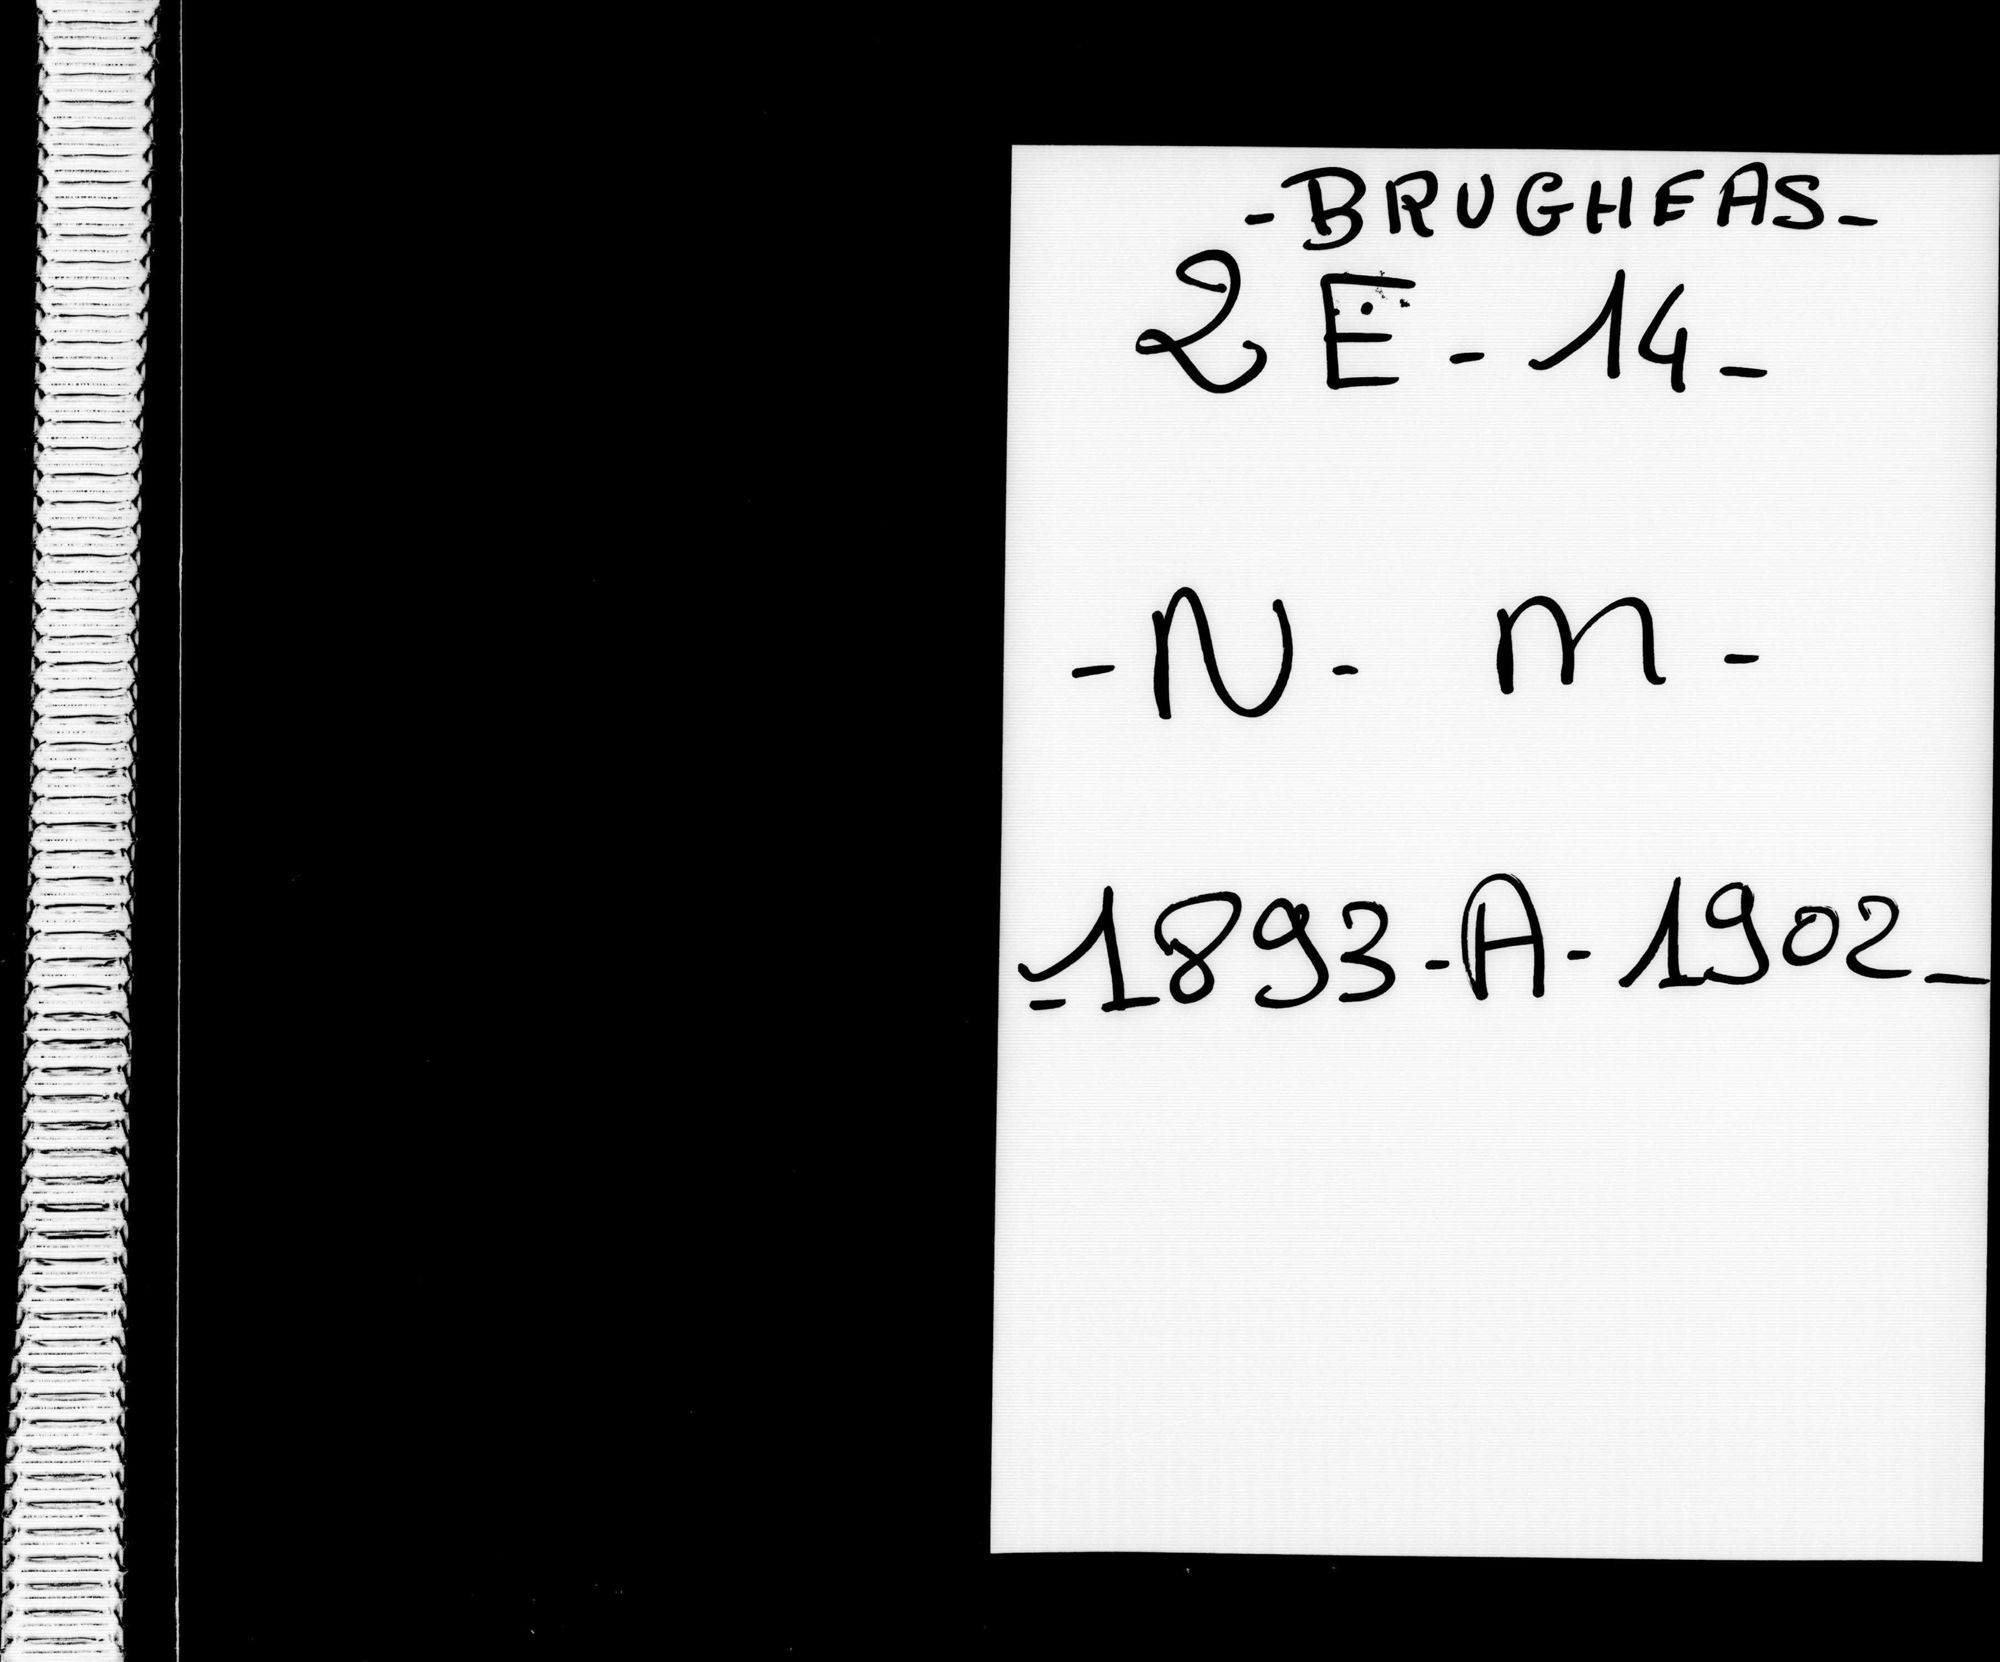 -BRUGHEAS-
2 E - 14 -
- N - M -
-1893-A-1902-